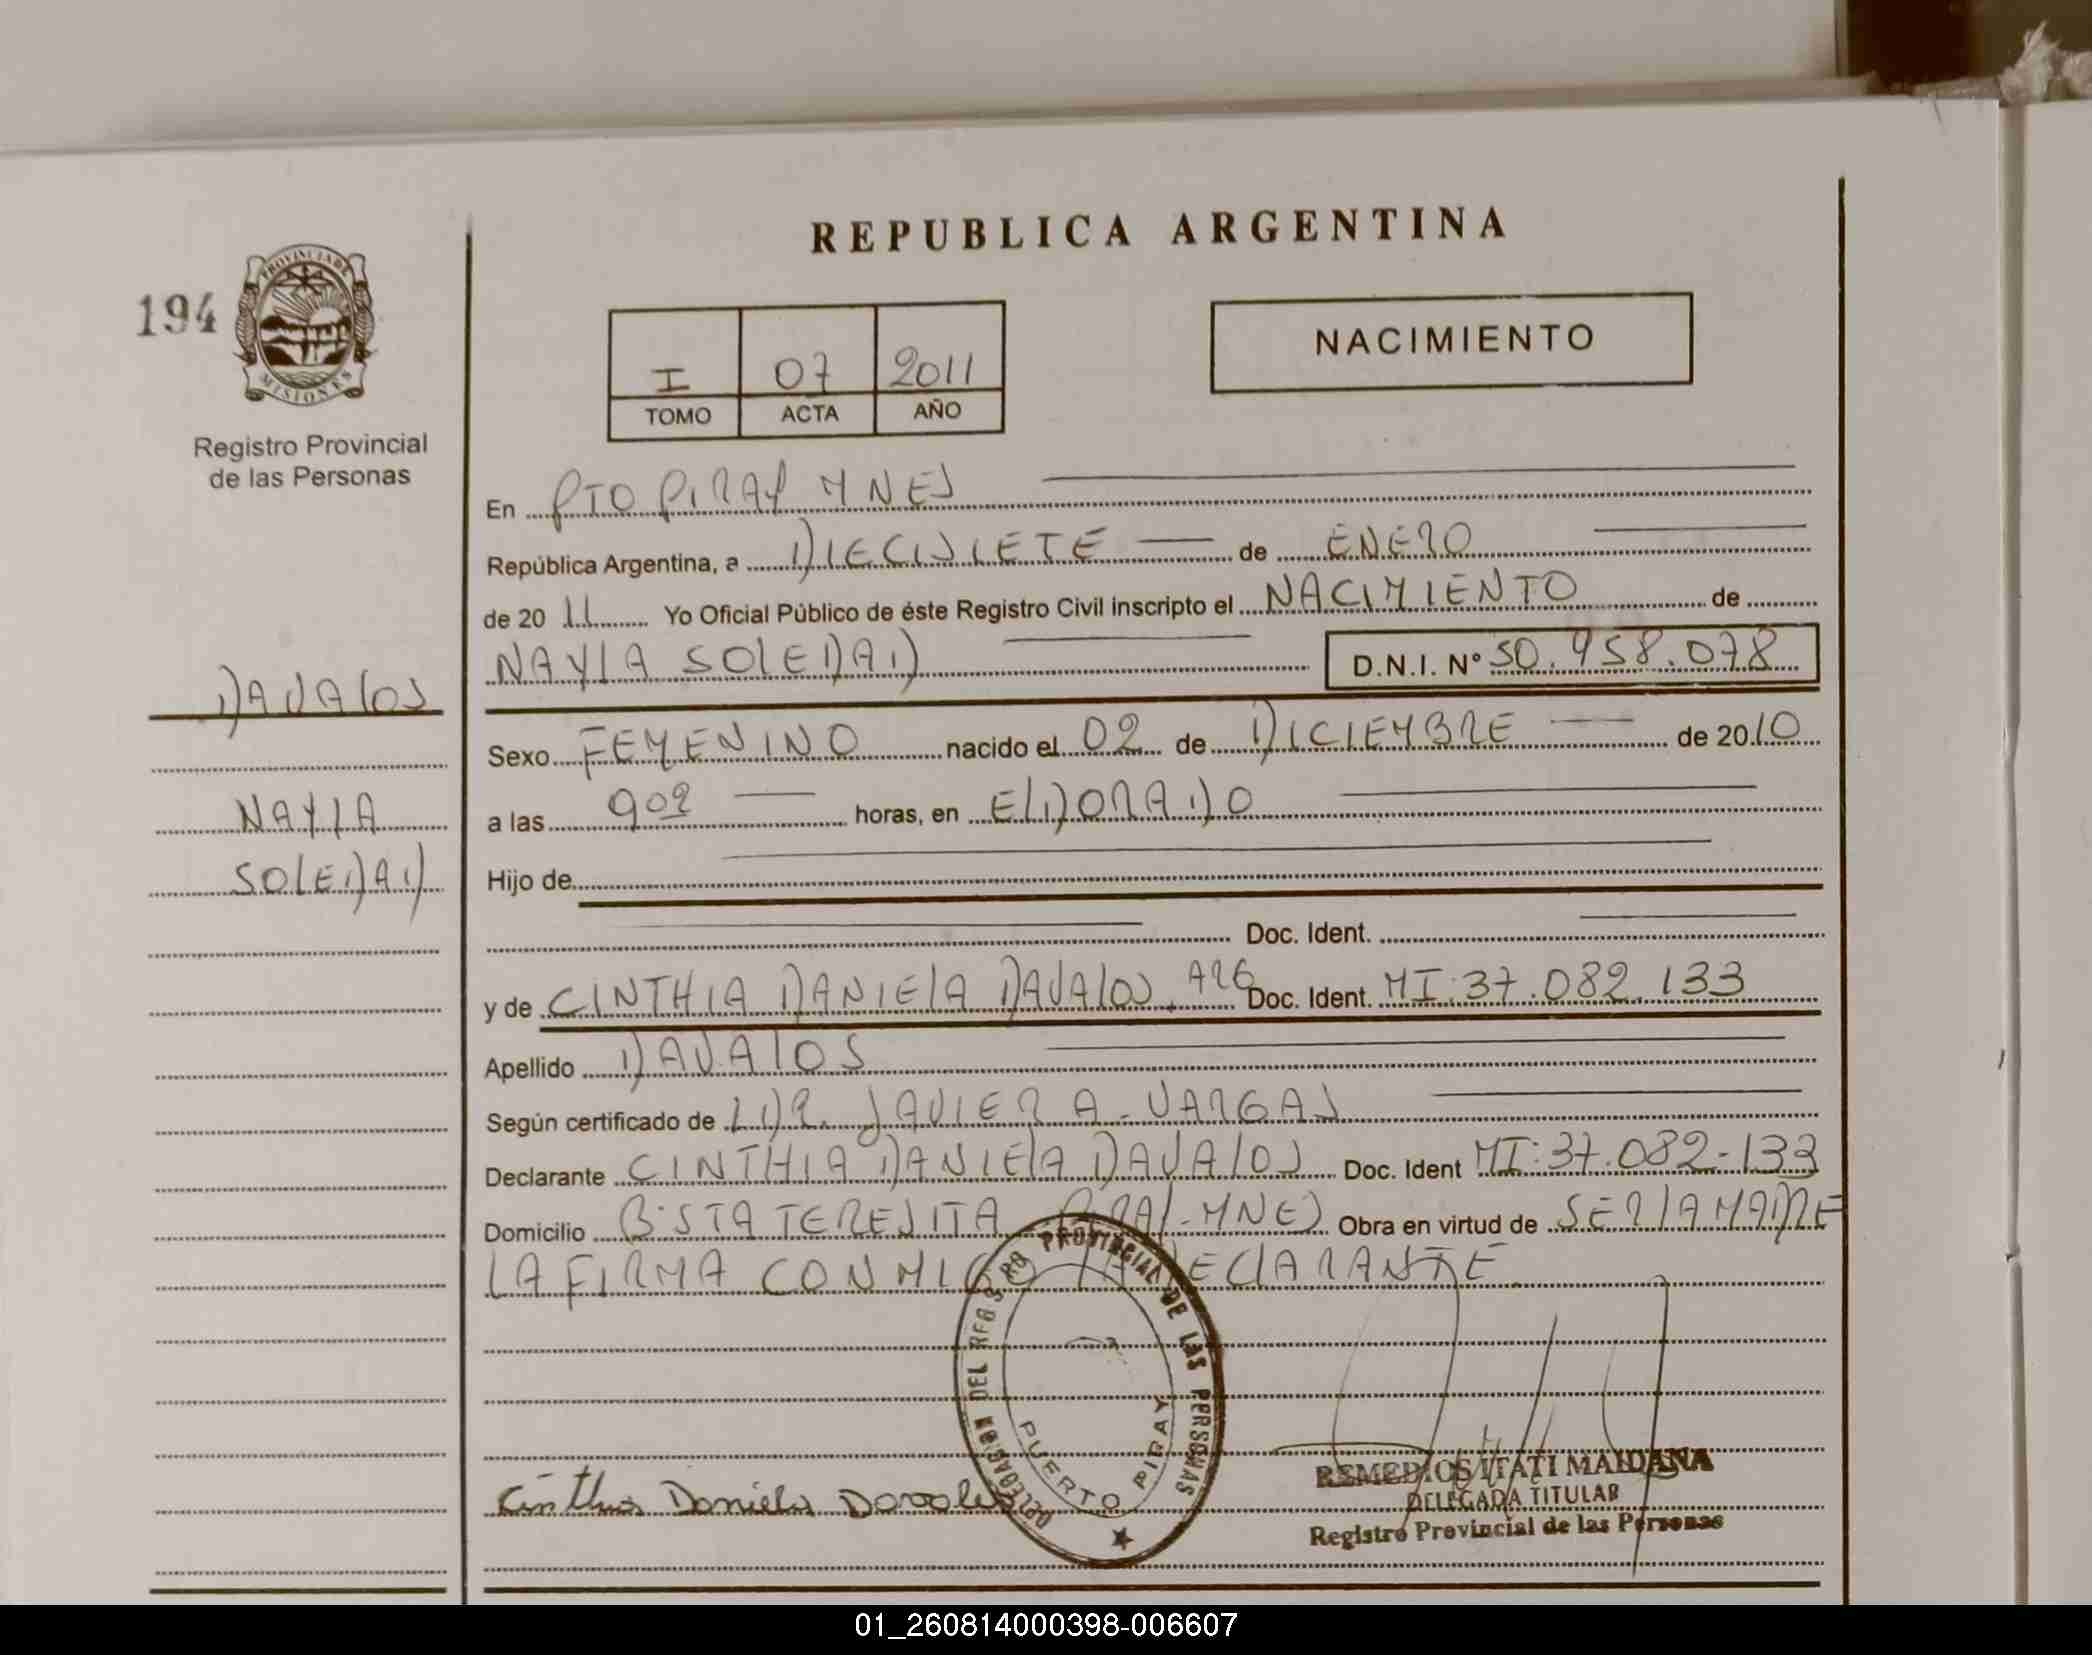 REPUBLICA ARGENTINA
194
PROVINCIA DE
MISIONES
Registro Provincial
de las Personas
I 07 2011
TOMO ACTA AÑO
NACIMIENTO
En PTO PIRAY MNES
República Argentina, a DIECISIETE de ENERO
de 20 11 Yo Oficial Público de éste Registro Civil inscripto el NACIMIENTO de
NAYLA SOLEDAD D.N.I. Nº 50.958.078
DAVALOS
NAYLA
SOLEDAD
Sexo FEMENINO nacido el 02 de DICIEMBRE de 2010
a las 902 horas, en ELDORADO
Hijo de
Doc. Ident.
y de CINTHIA DANIELA DAVALOS, ARG Doc. Ident. MI: 37.082.133
Apellido DAVALOS
Según certificado de DR. JAVIER A. VARGAS
Declarante CINTHIA DANIELA DAVALOS Doc. Ident MI: 37.082-133
Domicilio Bº STA TERESITA PIRAY-MNES Obra en virtud de SER LA MADRE
LA FIRMA CONMIGO LA DECLARANTE
DELEGACION DEL REGISTRO PROVINCIAL DE LAS PERSONAS
PUERTO PIRAY
Cinthia Daniela Davalos
REMEDIOS ITATI MAIDANA
DELEGADA TITULAR
Registro Provincial de las Personas
01_260814000398-006607